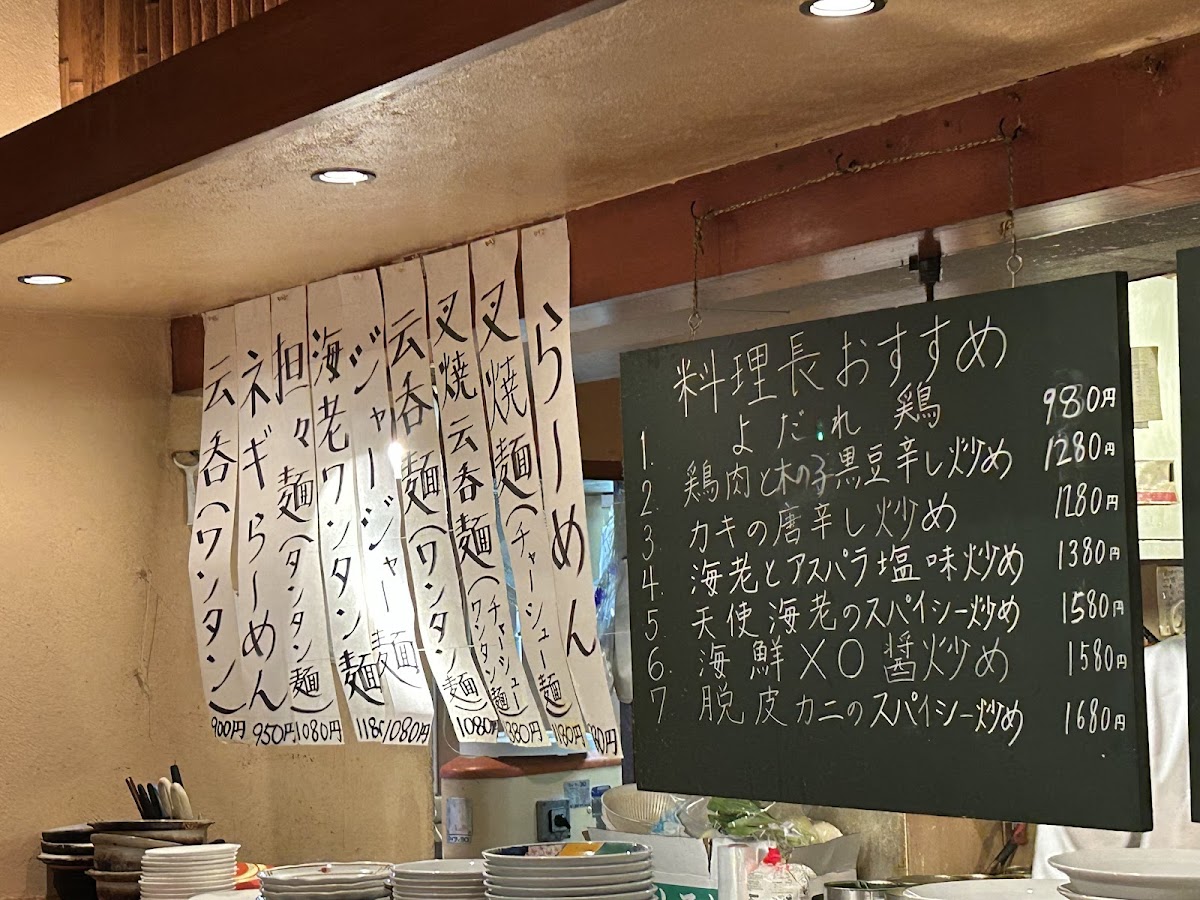 料理長おすすめ
1. よだれ鶏 980円
2. 鶏肉と木の子黒豆辛し炒め 1280円
3. カキの唐辛し炒め 1280円
4. 海老とアスパラ塩味炒め 1380円
5. 天使海老のスパイシー炒め 1580円
6. 海鮮XO醤炒め 1580円
7. 脱皮カニのスパイシー炒め 1680円
らーめん 80円
叉焼麺(チャーシュー麺) 1180円
叉焼云呑麺(チャーシューワンタン麺) 380円
云呑麺(ワンタン麺) 1080円
ジャージャー麺 1080円
海老ワンタン麺 118
担々麺(タンタン麺) 1080円
ネギらーめん 950円
云呑(ワンタン) 900円